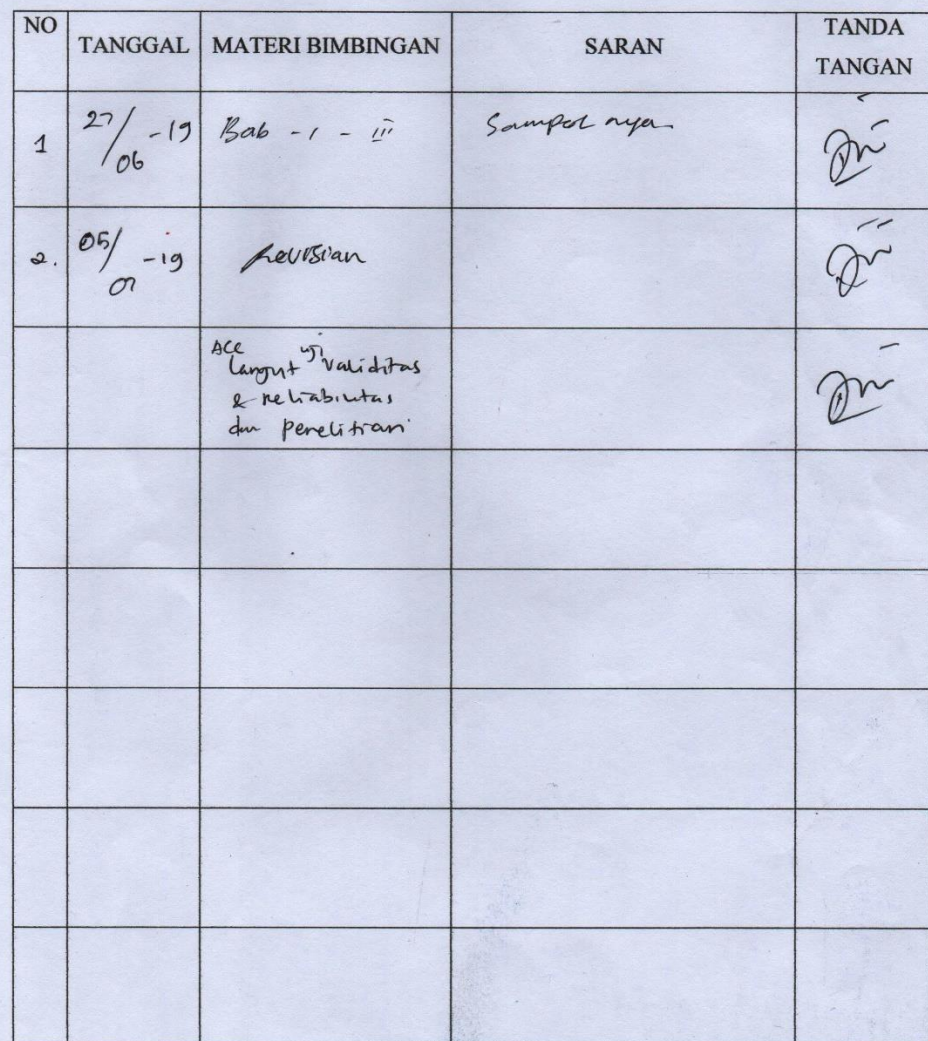 NO TANGGAL MATERI BIMBINGAN SARAN TANDA TANGAN
1 27/06-19 Bab - I - III Sampel nya
2. 05/07-19 Revisian
ACC
Lanjut uji validitas
& reliabilitas
dan penelitian